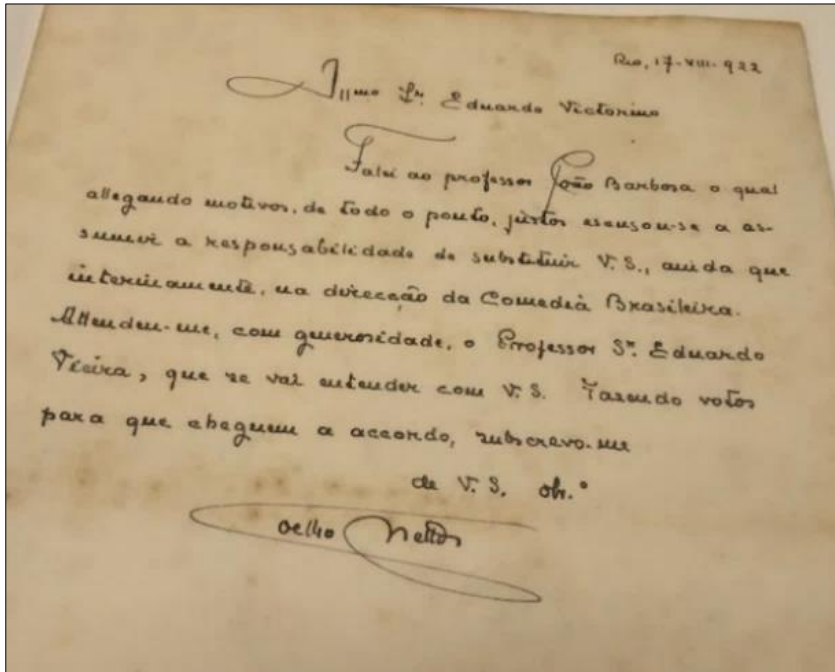 Rio, 17-VIII-922
Illmo Sr. Eduardo Victorino
Falei ao professor João Barbosa o qual
allegando motivos, de todo o ponto, justos escusou-se a as-
sumir a responsabilidade de substituir V. S., ainda que
interinamente, na direcção da Comedia Brasileira.
Attendeu-me, com generosidade, o Professor Sr. Eduardo
Vieira, que se vai entender com V. S. Fazendo votos
para que cheguem a accordo, subscrevo-me
de V. S. obr.º
Coelho Netto